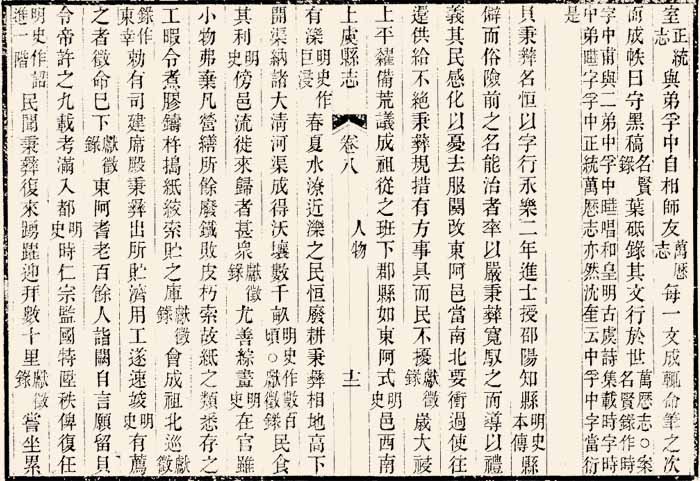 室正統志與弟孚中自相師友萬厯志每一文成輒命筆之次
而成帙曰守黑稿名賢錄葉砥錄其文行於世萬厯志○案名賢錄作時
字中甫與二弟中孚中睦唱和皇明古虞詩集載時字時
中弟睦字孚中正統萬厯志亦然沈奎云中孚中字當衍
是
貝秉彝名恒以字行永樂二年進士授邵陽知縣明史本傳縣
僻而俗險前之名能治者率以嚴秉彝寬馭之而導以禮
義其民感化以憂去服闋改東阿邑當南北要衝過使往
還供給不絕秉彝規措有方事具而民不擾獻徵錄歲大祲
上平糴備荒議成祖從之班下郡縣如東阿式明史邑西南
上虞縣志 卷八 人物 十二
有濼明史作巨浸春夏水潦近濼之民恒廢耕秉彝相地高下
開渠納諸大清河渠成得沃壤數千畝明史作數百頃○獻徵錄民食
其利明史傍邑流徙來歸者甚衆獻徵錄尤善綜畫明史在官雖
小物弗棄凡營繕所餘廢鐵敗皮朽索故紙之類悉存之
工暇令煮膠鑄杵搗紙絞索貯之庫獻徵錄會成祖北巡獻徵
錄作東幸勅有司建席殿秉彝出所貯濟用工遂速竣明史有薦
之者徵命已下獻徵錄東阿耆老百餘人詣闕自言願留貝
令帝許之九載考滿入都明史時仁宗監國特陞秩俾復任
明史作詔進一階民聞秉彝復來踴躍迎拜數十里獻徵錄嘗坐累